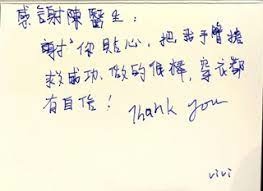 感謝陳醫生:
謝你貼心,把我手臂搶
救成功、做的很棒,穿衣都
有自信!
Thank you
vivi